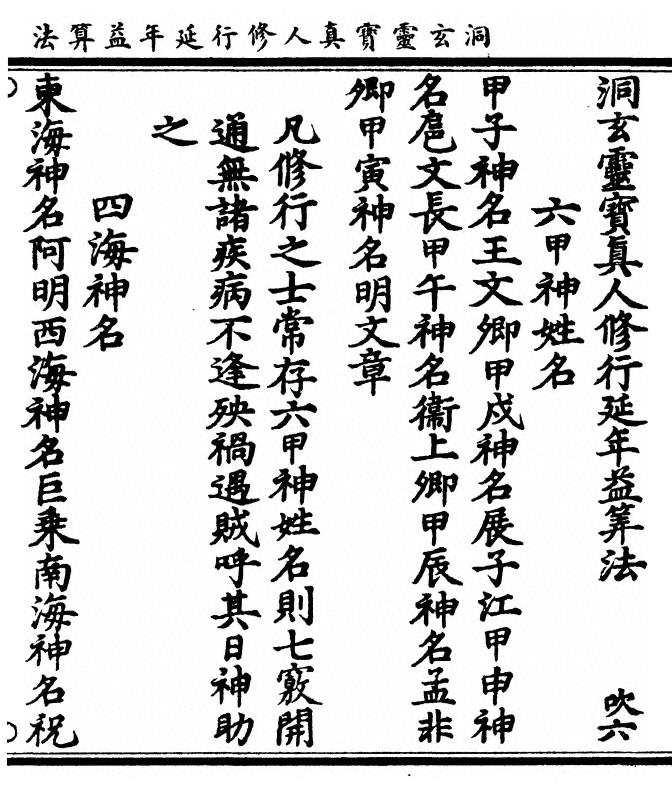 洞玄靈寶真人修行延年益算法
洞玄靈寶真人修行延年益筭法 吹六
六甲神姓名
甲子神名王文卿甲戍神名展子江甲申神
名扈文長甲午神名衞上卿甲辰神名孟非
卿甲寅神名明文章
凡修行之士常存六甲神姓名則七竅開
通無諸疾病不逢殃禍遇賊呼其日神助
之
四海神名
東海神名阿明西海神名巨乗南海神名祝